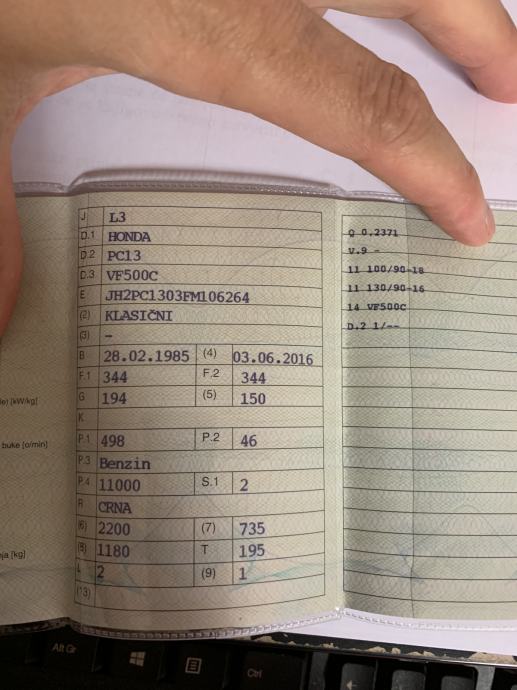 J L3
D.1 HONDA
D.2 PC13
D.3 VF500C
E JH2PC1303FM106264
(2) KLASIČNI
(3) -
B 28.02.1985 (4) 03.06.2016
F.1 344 F.2 344
G 194 (5) 150
K
P.1 498 P.2 46
P.3 Benzin
P.4 11000 S.1 2
R CRNA
(6) 2200 (7) 735
(8) 1180 T 195
L 2 (9) 1
(13)
Q 0.2371
V.9 -
11 100/90-18
11 130/90-16
14 VF500C
D.2 1/--
[kW/kg]
buke [o/min]
[kg]
Alt Gr
Ctrl